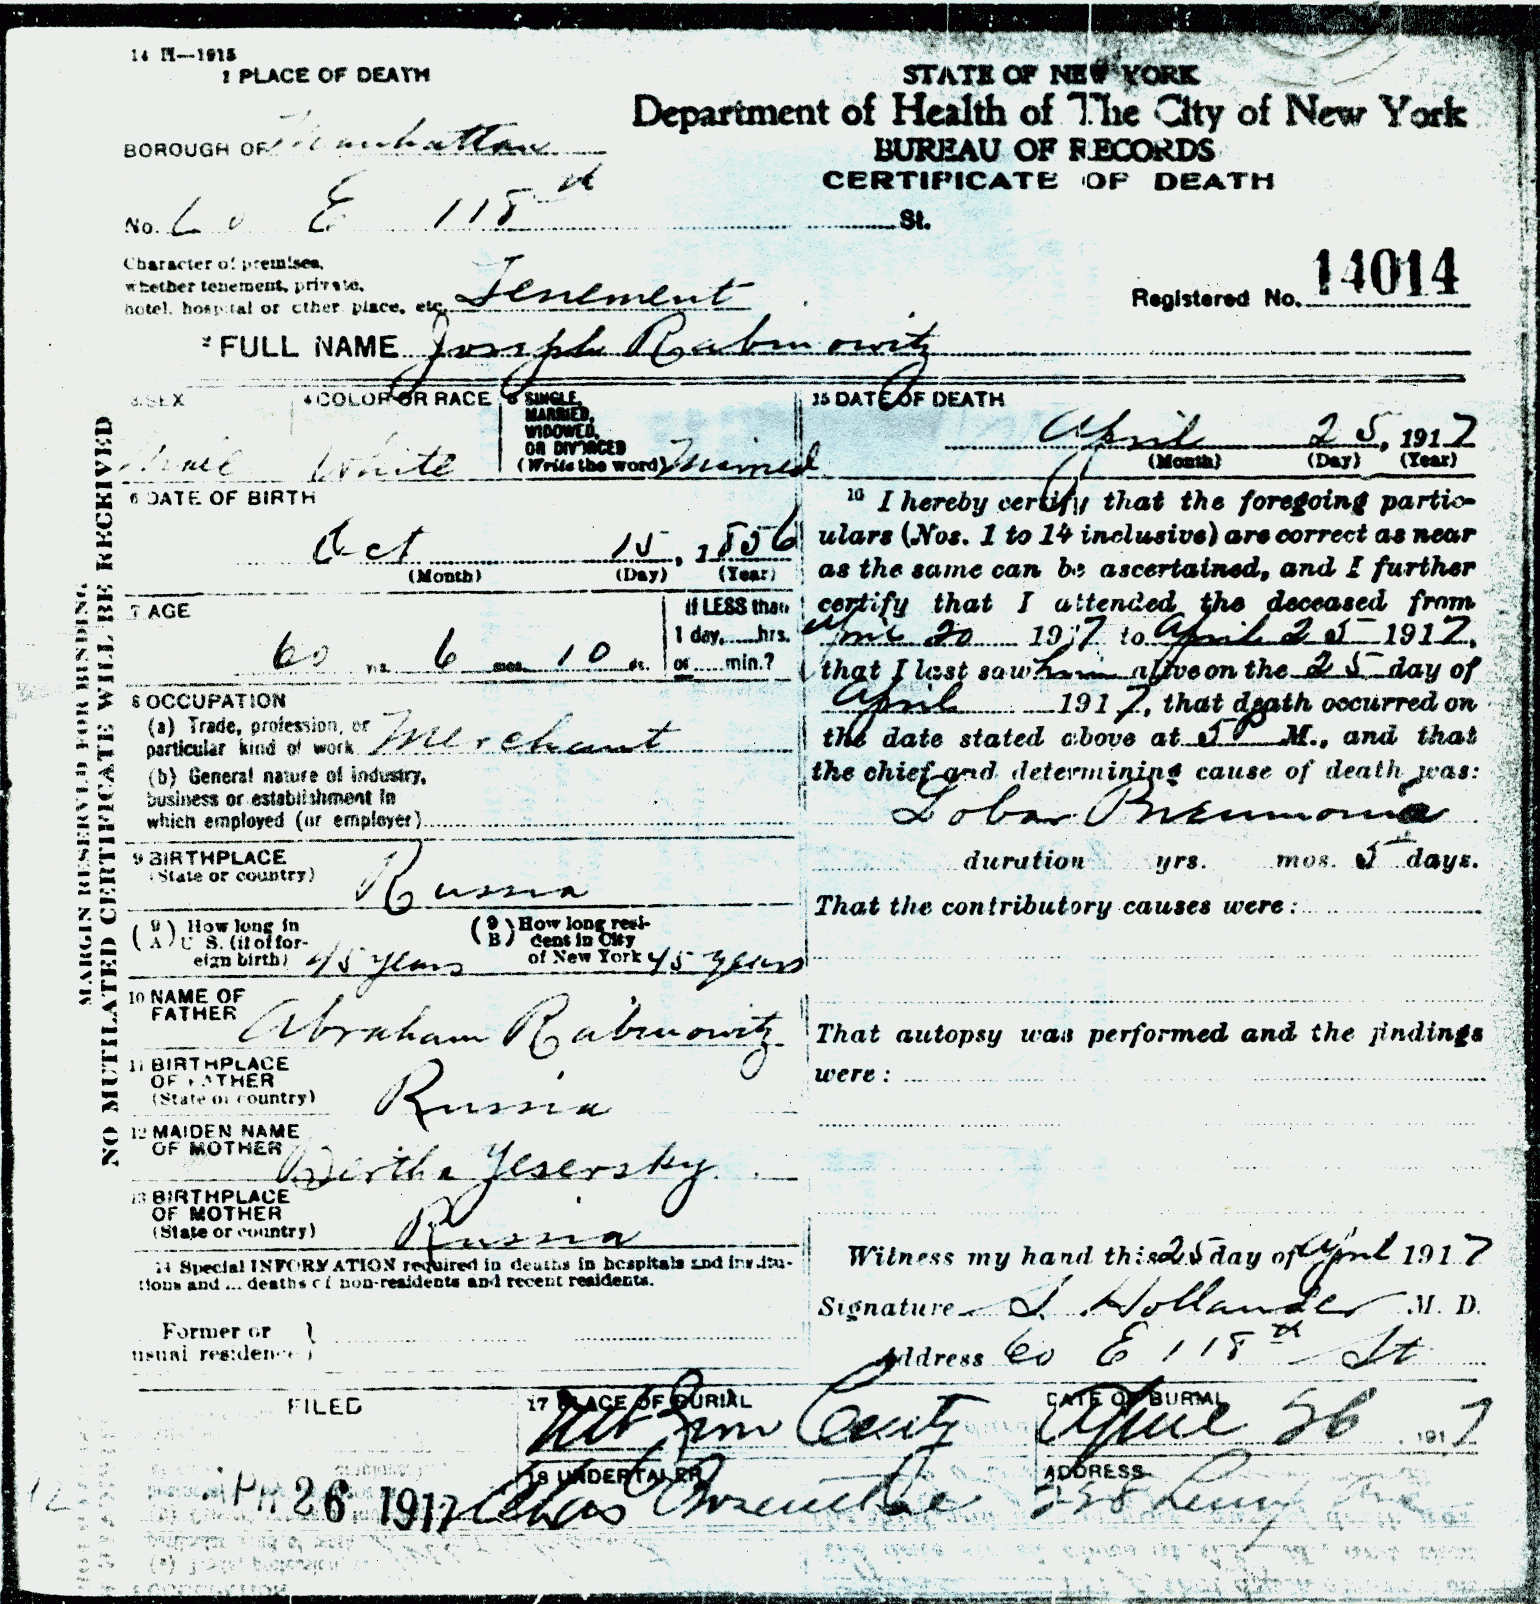 14 H—1915
1 PLACE OF DEATH
STATE OF NEW YORK
Department of Health of The City of New York
BUREAU OF RECORDS
CERTIFICATE OF DEATH
BOROUGH OF Manhattan
No. 60 E 118th St.
Character of premises,
whether tenement, private,
hotel, hospital or other place, etc. Tenement
Registered No. 14014
2 FULL NAME Joseph Rabinowitz
3 SEX
Male
4 COLOR OR RACE
White
5 SINGLE,
MARRIED,
WIDOWED,
OR DIVORCED
(Write the word) Married
6 DATE OF BIRTH
Oct 15, 1856
(Month) (Day) (Year)
7 AGE
60 yrs. 6 mos. 10 ds.
If LESS than
1 day,......hrs.
or ......min.?
8 OCCUPATION
(a) Trade, profession, or
particular kind of work Merchant
(b) General nature of industry,
business or establishment in
which employed (or employer)
9 BIRTHPLACE
(State or country) Russia
(9 A) How long in
U. S. (if of for-
eign birth) 45 years
(9 B) How long resi-
dent in City
of New York 45 years
10 NAME OF
FATHER Abraham Rabinowitz
11 BIRTHPLACE
OF FATHER
(State or country) Russia
12 MAIDEN NAME
OF MOTHER Bertha Yesersky
13 BIRTHPLACE
OF MOTHER
(State or country) Russia
14 Special INFORMATION required in deaths in hospitals and institu-
tions and ... deaths of non-residents and recent residents.
Former or
usual residence
15 DATE OF DEATH
April 25, 1917
(Month) (Day) (Year)
16 I hereby certify that the foregoing partic-
ulars (Nos. 1 to 14 inclusive) are correct as near
as the same can be ascertained, and I further
certify that I attended the deceased from
April 20 1917 to April 25 1917,
that I last saw him alive on the 25 day of
April 1917, that death occurred on
the date stated above at 5 P M., and that
the chief and determining cause of death was:
Lobar Pneumonia
duration yrs. mos. 5 days.
That the contributory causes were:
That autopsy was performed and the findings
were:
Witness my hand this 25 day of April 1917
Signature S. Hollander M. D.
Address 60 E 118th St
FILED
APR 26 1917
17 PLACE OF BURIAL
Mt Zion
DATE OF BURIAL
April 26 1917
18 UNDERTAKER
Chas Rosenthal
ADDRESS
MARGIN RESERVED FOR BINDING
NO MUTILATED CERTIFICATE WILL BE RECEIVED